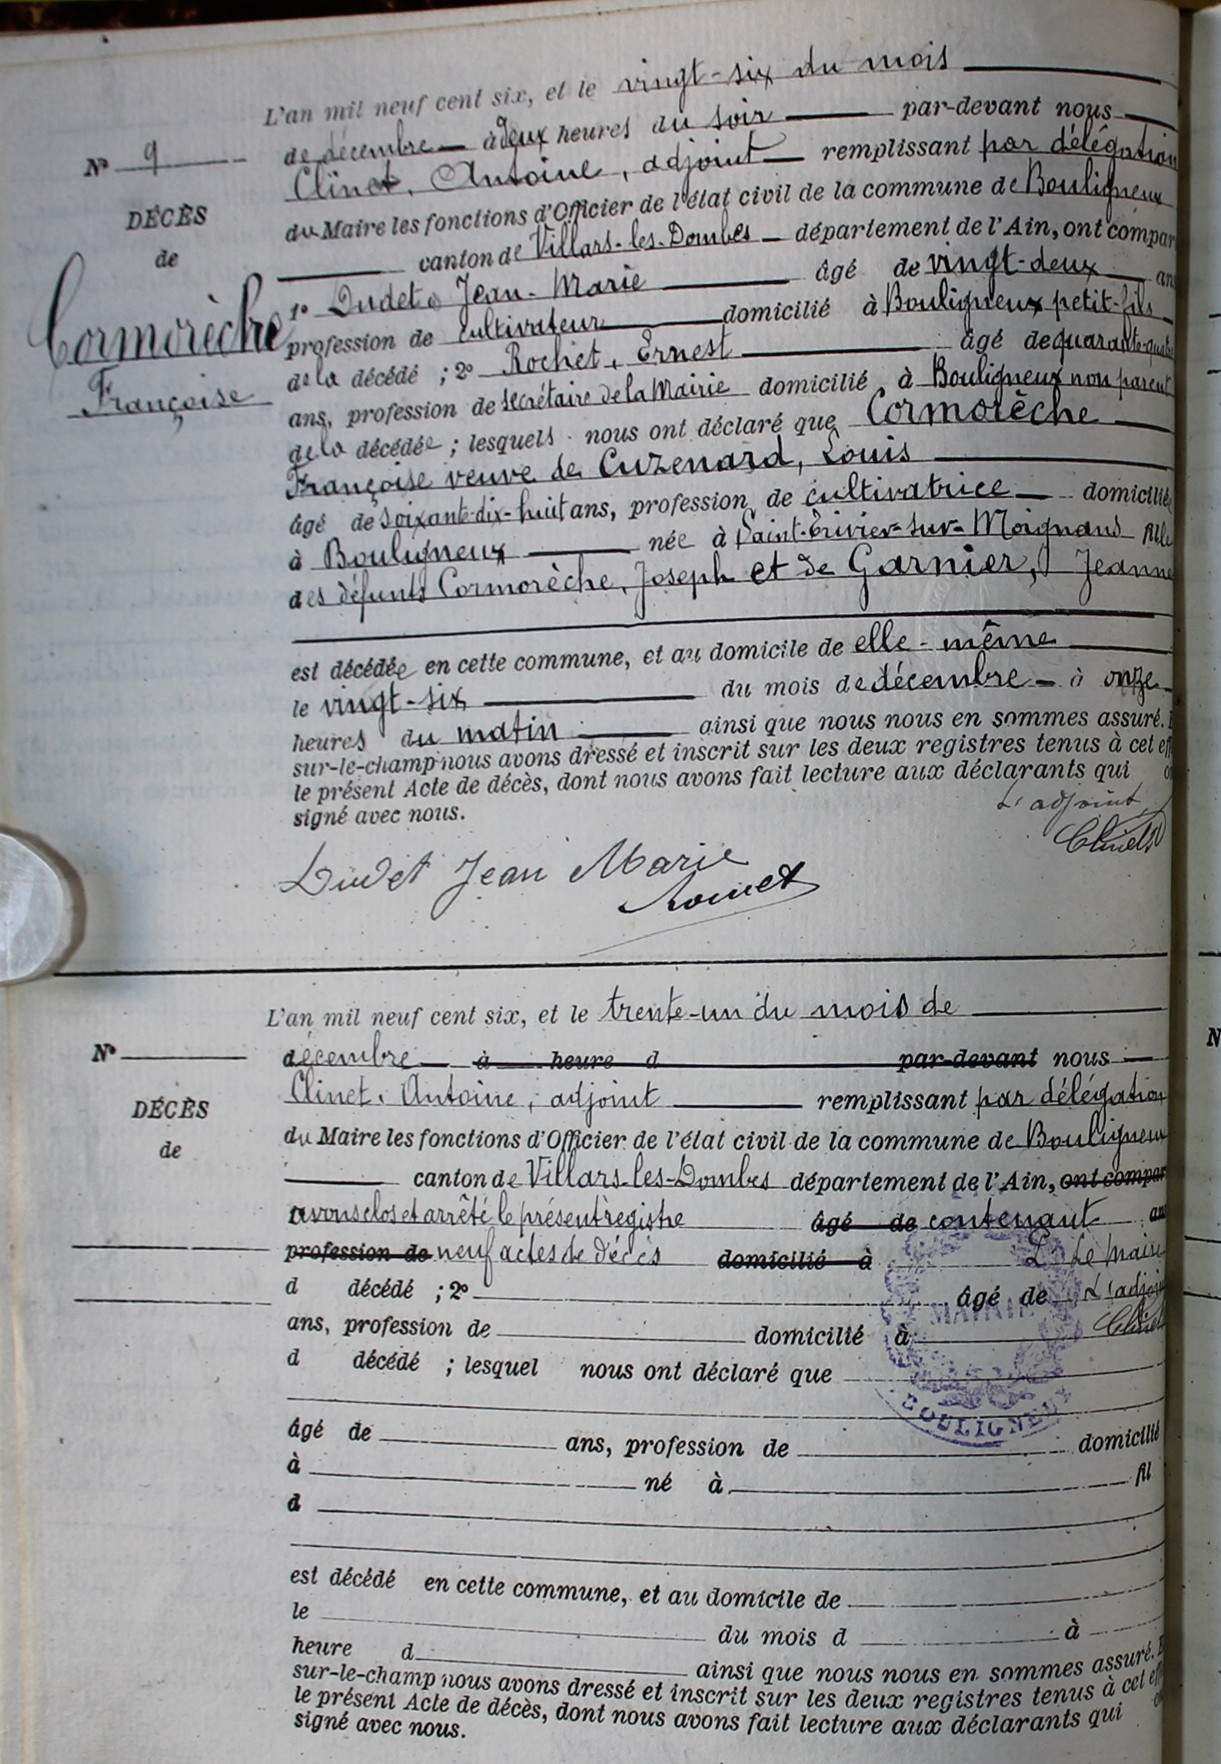 L'an mil neuf cent six, et le vingt-six du mois
de décembre à deux heures du soir par-devant nous
Nº 9
Clinet, Antoine, adjoint remplissant par délégation
DÉCÈS
du Maire les fonctions d'Officier de l'état civil de la commune de Bouligneux
de
canton de Villars-les-Dombes département de l'Ain, ont compar
Cormorèche
Françoise
1º Dudet, Jean-Marie âgé de vingt-deux ans
profession de cultivateur domicilié à Bouligneux petit-fils
de la décédé ; 2º Rochet, Ernest âgé de quarante-quatre
ans, profession de secrétaire de la Mairie domicilié à Bouligneux non parent
de la décédée ; lesquels nous ont déclaré que Cormorèche
Françoise veuve de Cuzenard, Louis
âgé de soixante-dix-huit ans, profession de cultivatrice domicilié
à Bouligneux née à Saint-Trivier-sur-Moignans fille
des défunts Cormorèche, Joseph et de Garnier, Jeanne
est décédée en cette commune, et au domicile de elle-même
le vingt-six du mois de décembre à onze
heures du matin ainsi que nous nous en sommes assuré. E
sur-le-champ nous avons dressé et inscrit sur les deux registres tenus à cet eff
le présent Acte de décès, dont nous avons fait lecture aux déclarants qui o
signé avec nous.
L'adjoint
Clinet
Dudet Jean Marie
L'an mil neuf cent six, et le trente-un du mois de
Nº
décembre à heure d par-devant nous
Clinet, Antoine, adjoint remplissant par délégation
DÉCÈS
du Maire les fonctions d'Officier de l'état civil de la commune de Bouligneux
de
canton de Villars-les-Dombes département de l'Ain, ont compar
avons clos et arrêté le présent registre âgé de contenant an
profession de neuf actes de décès domicilié à Le Maire
d décédé ; 2º âgé de L'adjoi
ans, profession de domicilié à Clinet
MAIRIE
d décédé ; lesquel nous ont déclaré que
BOULIGNEUX
âgé de ans, profession de domicilié
à né à fil
d
est décédé en cette commune, et au domicile de
le du mois d à
heure d ainsi que nous nous en sommes assuré. E
sur-le-champ nous avons dressé et inscrit sur les deux registres tenus à cet eff
le présent Acte de décès, dont nous avons fait lecture aux déclarants qui o
signé avec nous.
N